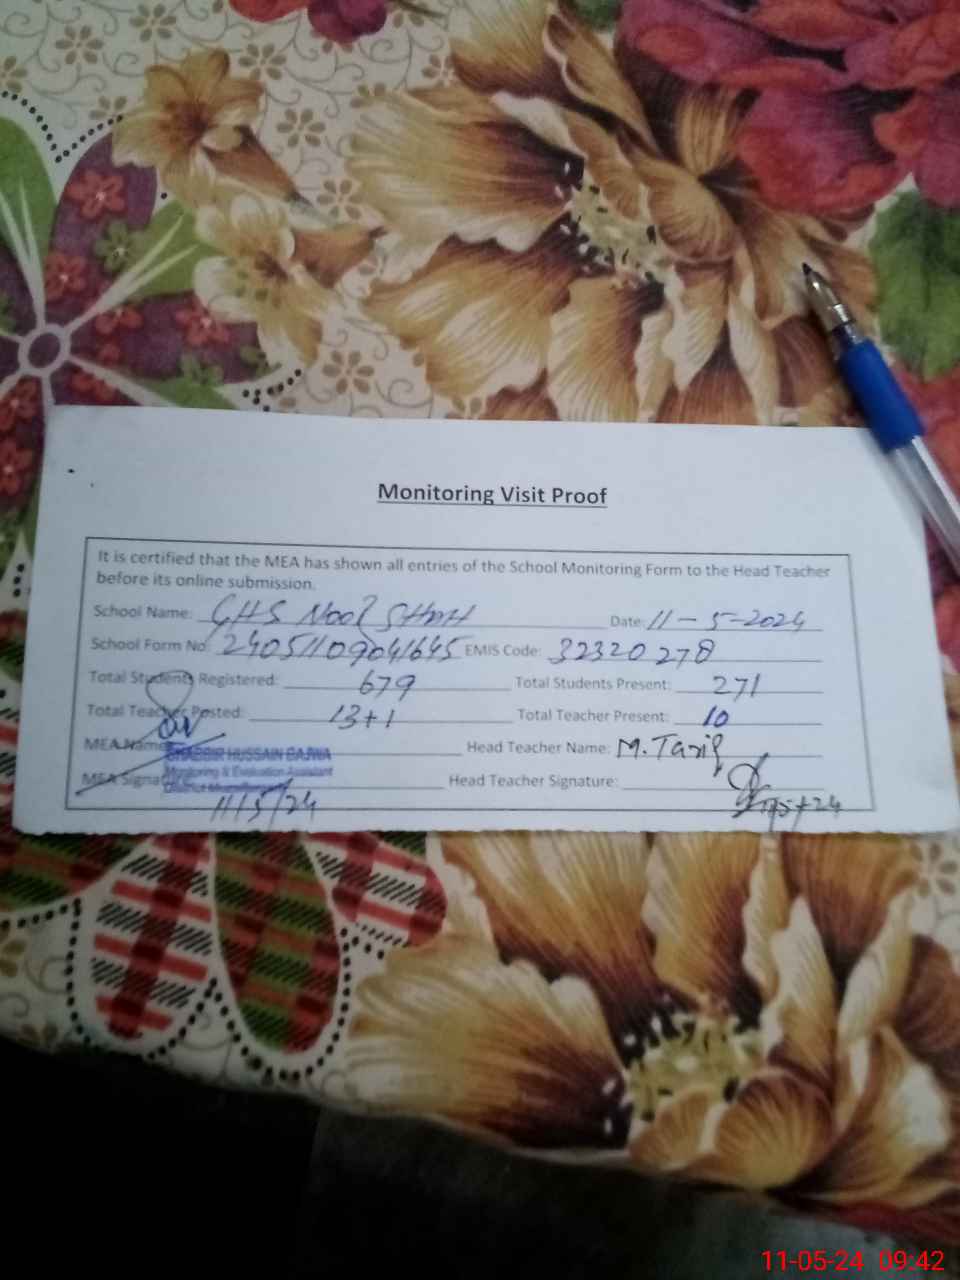 Monitoring Visit Proof
It is certified that the MEA has shown all entries of the School Monitoring Form to the Head Teacher
before its online submission.
School Name: GHS Noor SHAH Date: 11-5-2024
School Form No: 24051109041645 EMIS Code: 32320278
Total Students Registered: 679 Total Students Present: 271
Total Teacher Posted: 13+1 Total Teacher Present: 10
MEA Name: SHABBIR HUSSAIN BAJWA Head Teacher Name: M. Tariq
Monitoring & Evaluation Assistant
MEA Signature: District Head Teacher Signature:
11/5/24
11-05-24 09:42